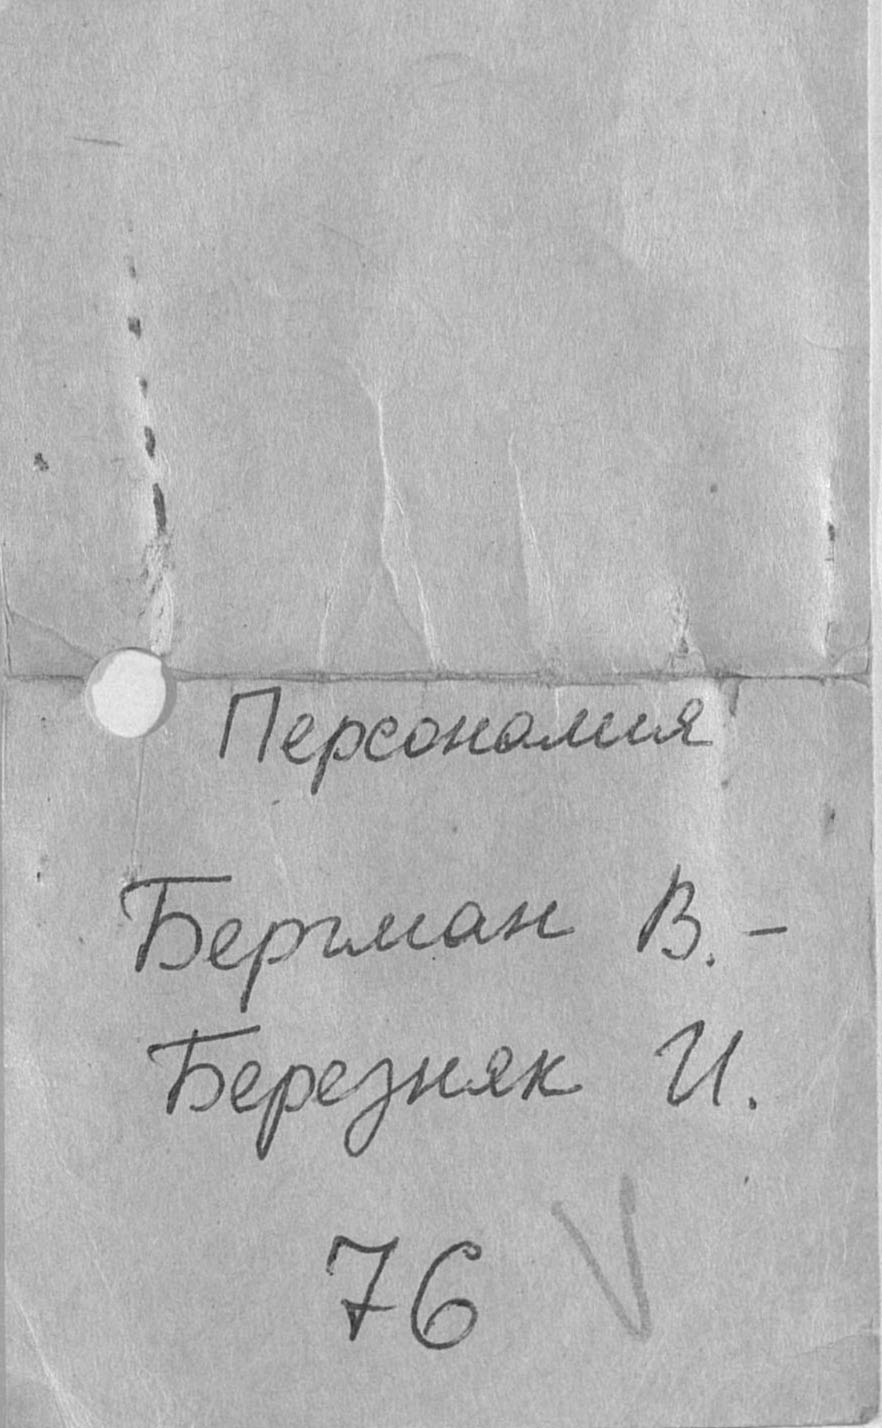 Персоналия
Бергман В. -
Березняк И.
76 V